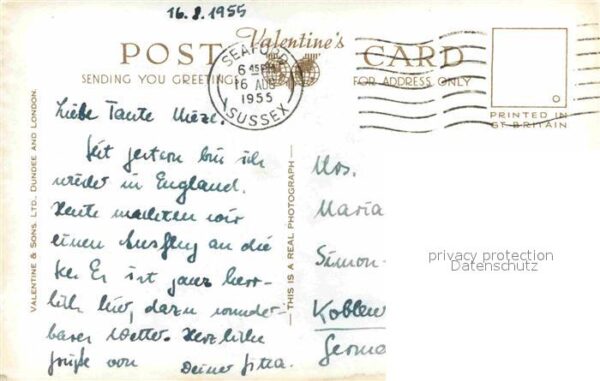 16.8.1955
Valentine's
POST CARD
SENDING YOU GREETINGS
FOR ADDRESS ONLY
SEAFORD
6 45PM
16 AUG
1955
SUSSEX
PRINTED IN
GT BRITAIN
VALENTINE & SONS. LTD. DUNDEE AND LONDON.
Liebe Tante Miezl.
Seit gestern bin ich
wieder in England.
Heute machten wir
einen Ausflug an die
See. Es ist ganz herr-
lich hier, dazu wunder-
bares Wetter. Herzliche
Grüße von Deiner
THIS IS A REAL PHOTOGRAPH
Mrs.
Maria
Simon-
Koblen
Germa
privacy protection
Datenschutz